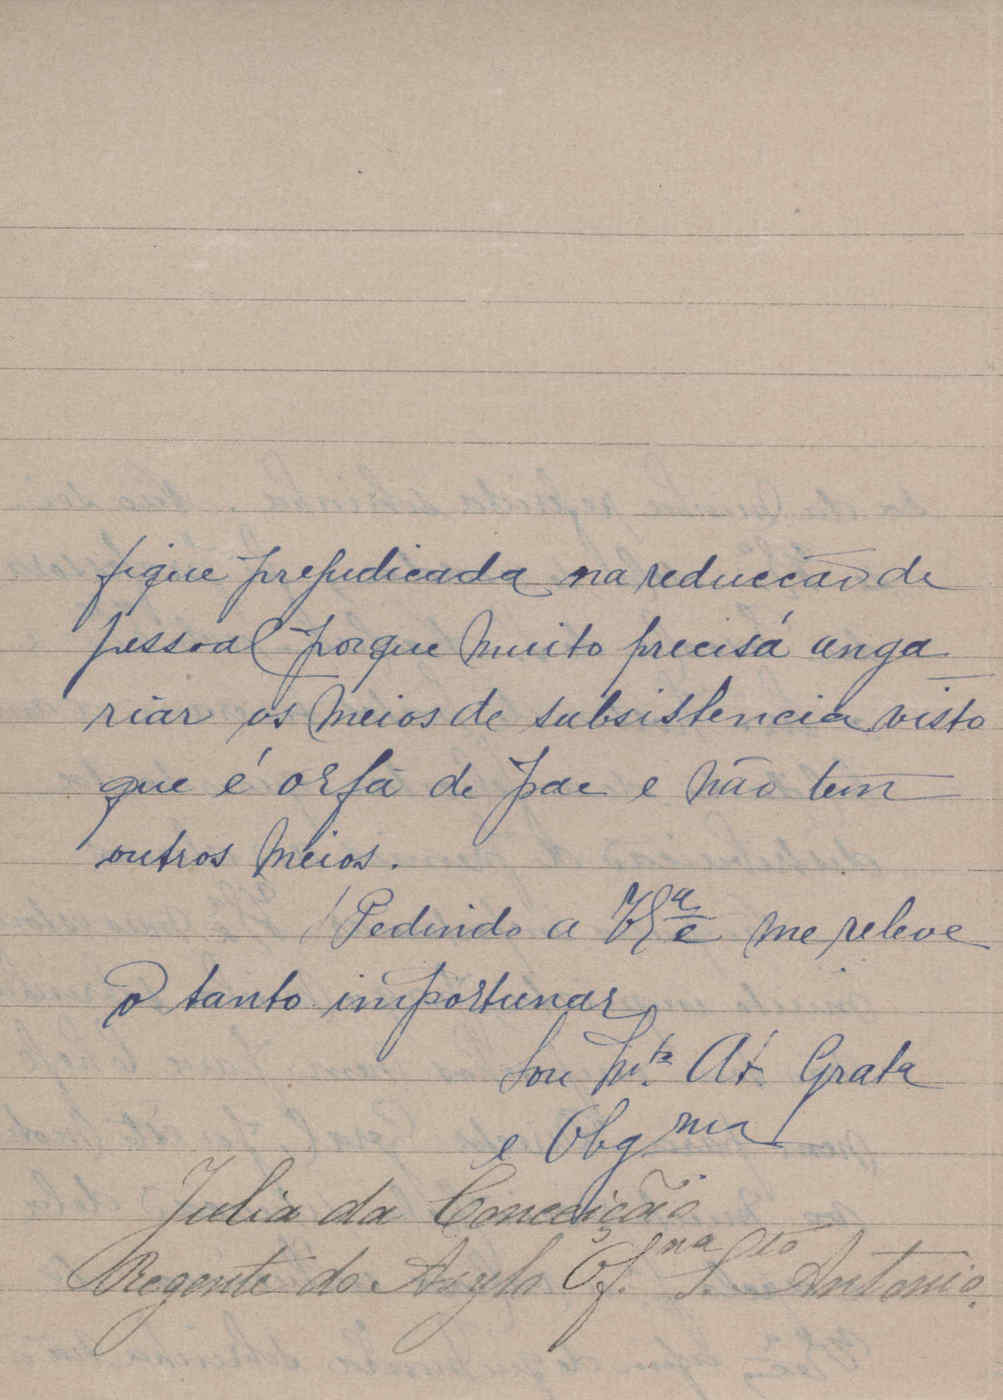 fique prejudicada na reducção de
pessoal porque muito precisa anga
riar os meios de subsistencia visto
que é orfã de pae e não tem
outros meios.
Pedindo a V Eª me releve
o tanto importunar
Sou Mto. At. Grata
e Obgma
Julia da Conceição
Regente do Asylo Of.na S.to Antonio.